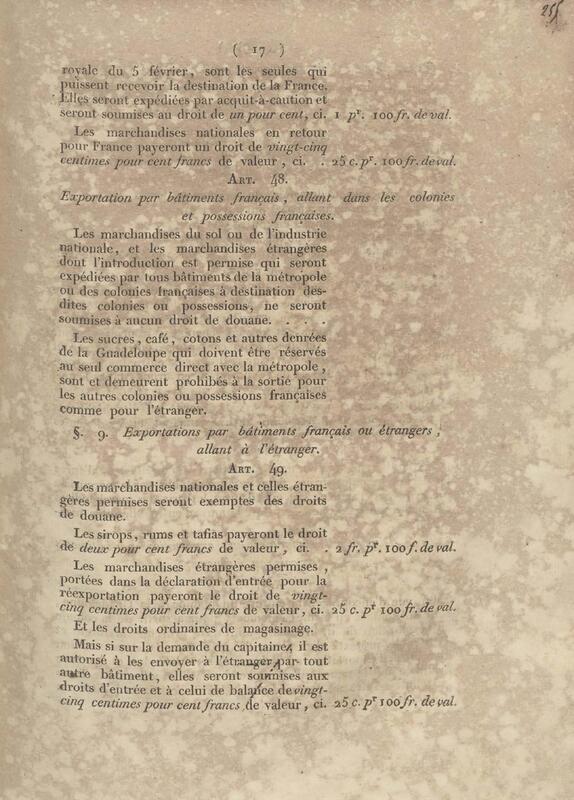 255
( 17 )
royale du 5 février, sont les seules qui
puissent recevoir la destination de la France.
Elles seront expédiées par acquit-à-caution et
seront soumises au droit de un pour cent, ci. 1 pr. 100 fr. de val.
Les marchandises nationales en retour
pour France payeront un droit de vingt-cinq
centimes pour cent francs de valeur, ci. . 25 c. pr. 100 fr. de val.
ART. 48.
Exportation par bâtiments français, allant dans les colonies
et possessions françaises.
Les marchandises du sol ou de l'industrie
nationale, et les marchandises étrangères
dont l'introduction est permise qui seront
expédiées par tous bâtiments de la métropole
ou des colonies françaises à destination des-
dites colonies ou possessions, ne seront
soumises à aucun droit de douane. . . . .
Les sucres, café, cotons et autres denrées
de la Guadeloupe qui doivent être réservés
au seul commerce direct avec la métropole,
sont et demeurent prohibés à la sortie pour
les autres colonies ou possessions françaises
comme pour l'étranger.
§. 9. Exportations par bâtiments français ou étrangers,
allant à l'étranger.
ART. 49.
Les marchandises nationales et celles étran-
gères permises seront exemptes des droits
de douane.
Les sirops, rums et tafias payeront le droit
de deux pour cent francs de valeur, ci. . 2 fr. pr. 100 f. de val.
Les marchandises étrangères permises,
portées dans la déclaration d'entrée pour la
réexportation payeront le droit de vingt-
cinq centimes pour cent francs de valeur, ci. 25 c. pr 100 fr. de val.
Et les droits ordinaires de magasinage.
Mais si sur la demande du capitaine, il est
autorisé à les envoyer à l'étranger par tout
autre bâtiment, elles seront soumises aux
droits d'entrée et à celui de balance de vingt-
cinq centimes pour cent francs de valeur, ci. 25 c. pr 100 fr. de val.